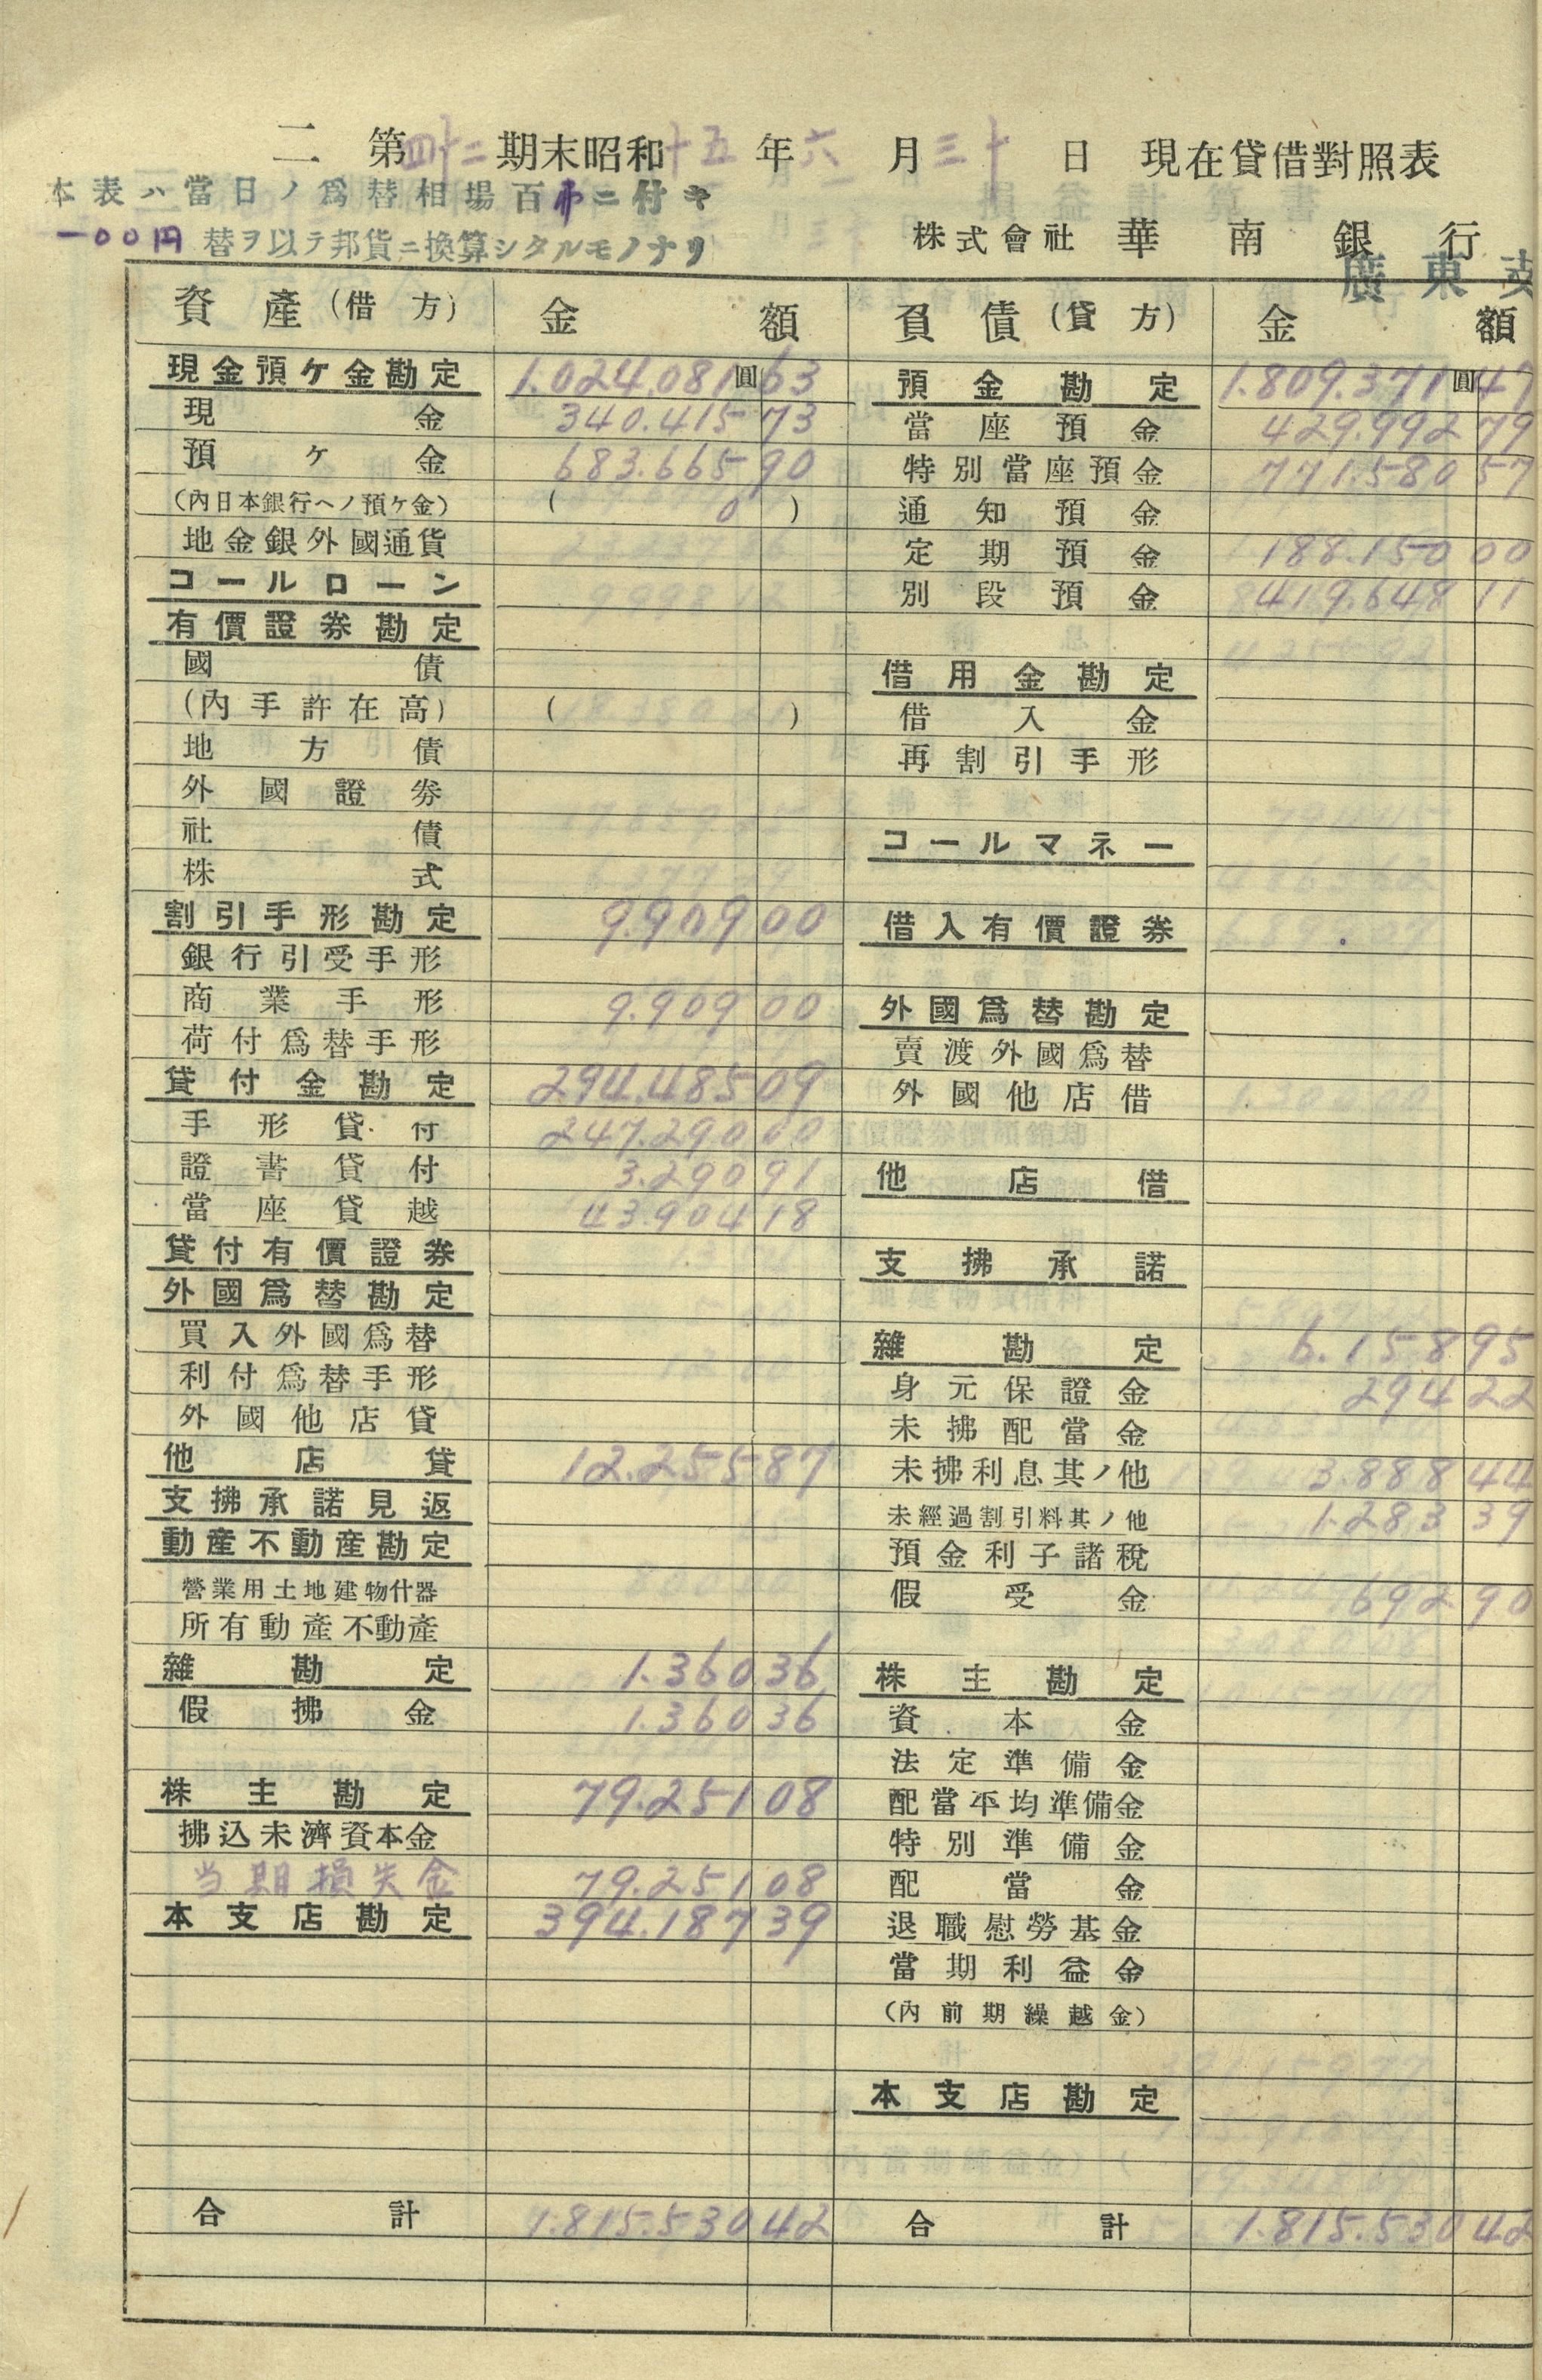 二 第四十二期末昭和十五年六月三十日 現在貸借對照表
本表ハ當日ノ爲替相場百弗ニ付キ
一〇〇円替ヲ以テ邦貨ニ換算シタルモノナリ
株式會社 華南銀行
廣東支
資產(借方) 金額 負債(貸方) 金額
現金預ケ金勘定 1.024.081圓63
現金 340.415 73
預ケ金 683.665 90
(內日本銀行ヘノ預ケ金) ( 0 )
地金銀外國通貨
コールローン
有價證券勘定
國債
(內手許在高) ( )
地方債
外國證券
社債
株式
割引手形勘定 9.909 00
銀行引受手形
商業手形 9.909 00
荷付爲替手形
貸付金勘定 294.485 09
手形貸付 247.290 00
證書貸付 3.290 91
當座貸越 43.904 18
貸付有價證券
外國爲替勘定
買入外國爲替
利付爲替手形
外國他店貸
他店貸 12.255 87
支拂承諾見返
動產不動產勘定
營業用土地建物什器
所有動產不動產
雜勘定 1.360 36
假拂金 1.360 36
株主勘定 79.251 08
拂込未濟資本金
当期損失金 79.251 08
本支店勘定 394.187 39
合計 1.815.530 42
預金勘定 1.809.371圓47
當座預金 429.992 79
特別當座預金 771.580 57
通知預金
定期預金 188.150 00
別段預金 419.648 11
借用金勘定
借入金
再割引手形
コールマネー
借入有價證券
外國爲替勘定
賣渡外國爲替
外國他店借
他店借
支拂承諾
雜勘定 6.158 95
身元保證金 294 22
未拂配當金
未拂利息其ノ他 3.888 44
未經過割引料其ノ他 1.283 39
預金利子諸稅
假受金 692 90
株主勘定
資本金
法定準備金
配當平均準備金
特別準備金
配當金
退職慰勞基金
當期利益金
(內前期繰越金)
本支店勘定
合計 1.815.530 42